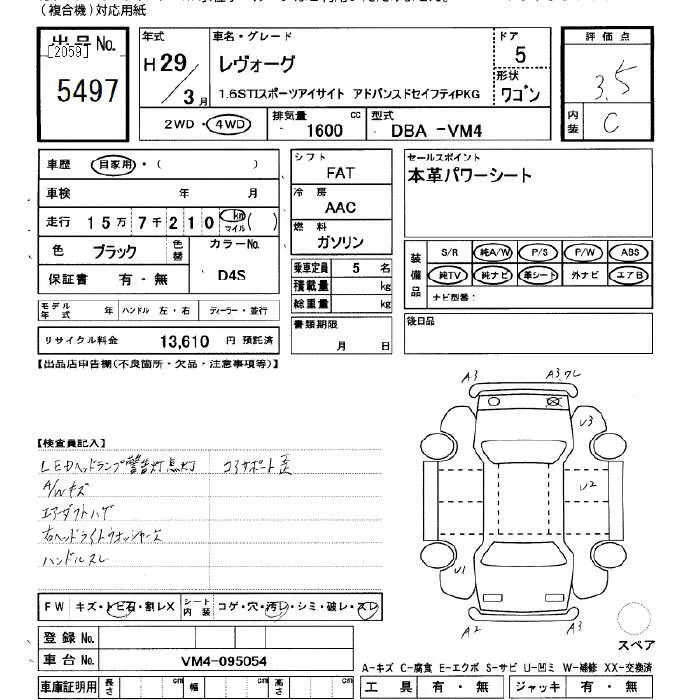 (複合機)対応用紙
出品No.
[2059]
5497
年式
H29/3月
車名・グレード
レヴォーグ
1.6STIスポーツアイサイト アドバンスドセイフティPKG
ドア
5
形状
ワゴン
評価点
3.5
内装
C
2WD・4WD
排気量 cc
1600
型式
DBA -VM4
車歴 自家用・( )
車検 年 月
走行 15万7千210 km マイル ( )
色 ブラック 色替
カラーNo.
D4S
保証書 有・無
シフト
FAT
冷房
AAC
燃料
ガソリン
乗車定員 5 名
積載量 kg
総重量 kg
書類期限
月 日
セールスポイント
本革パワーシート
装備品
S/R 純A/W P/S P/W ABS
純TV 純ナビ 革シート 外ナビ エアB
ナビ型番:
後日品
モデル年式 年 ハンドル 左・右 ディーラー・並行
リサイクル料金 13,610 円 預託済
【出品店申告欄(不良箇所・欠品・注意事項等)】
【検査員記入】
LEDヘッドランプ警告灯点灯 コアサポート歪
A/Wキズ
エアダクトハゲ
右ヘッドライトウォッシャーズレ
ハンドルスレ
A3 A3ワレ
U3
U2
U1
A2 A3
スペア
FW キズ・トビ石・割レX
シート内装 コゲ・穴・汚レ・シミ・破レ・スレ
登録No.
車台No. VM4-095054
車庫証明用 長さ cm 幅 cm 高さ cm
A-キズ C-腐食 E-エクボ S-サビ U-凹ミ W-補修 XX-交換済
工具 有・無 ジャッキ 有・無